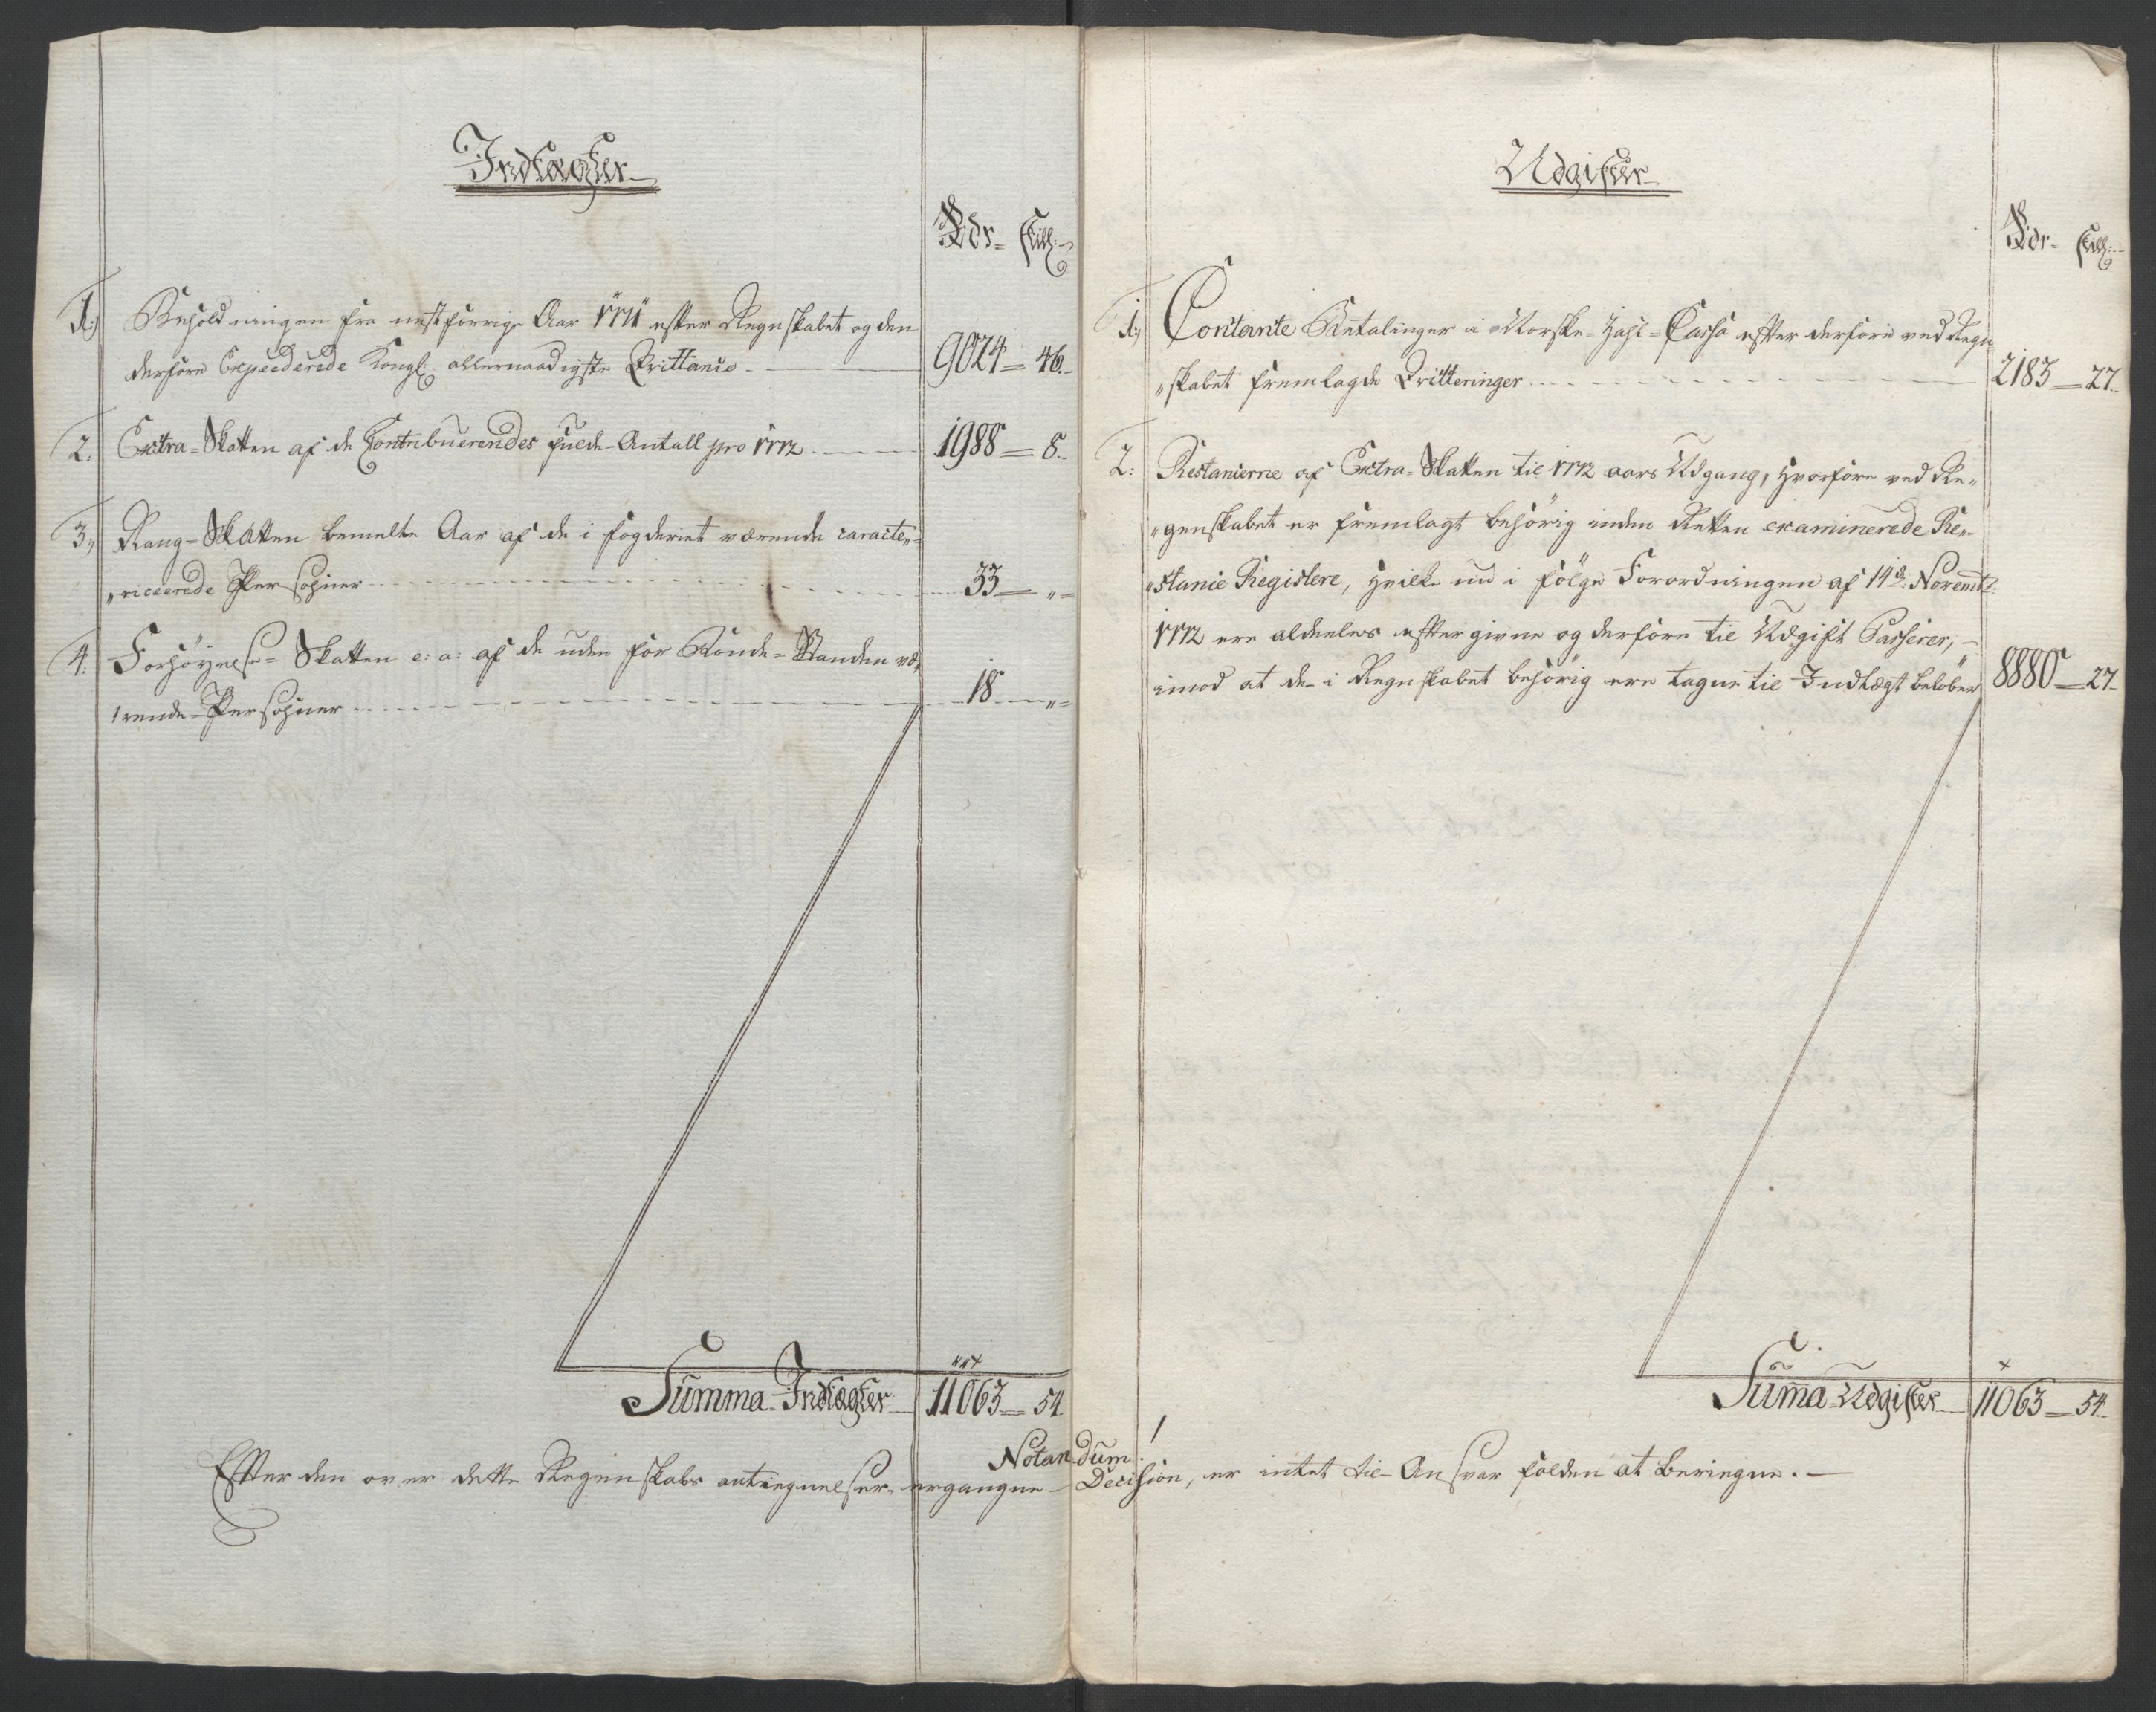 Indtægter
Rdr- Skill:
1.) Beholdningen fra nestforrige Aar 1771 efter Regnskabet og den
derfore Expederede Kongl. allernaadigste Qvittance - 9024 = 46.
2. Extra-Skatten af de Contribuerendes fulde Antall pro 1772 1988 = 8.
3., Rang-Skatten bemelte Aar af de i fogderiet værende caracte„
„riceerede Persohner 33 — „
4. Forhöyelse-Skatten e: a: af de uden for Bonde-Standen væ„
„rende Persohner 18 — „
Summa Indtægter 11063 = 54
Udgifter
Rdr- Skill:
1., Contante Betalinger i Norske Zahl-Cassa efter derfore ved Regn
„skabet fremlagde Qvitteringer 2183 — 27.
2: Restancerne af Extra-Skatten til 1772 aars Udgang, hvorfore ved Re„
„genskabet er fremlagt behörig inden Retten examinerede Re„
„stance Registere, hvilke nu i fölge Forordningen af 14de Novembr:
1772 ere aldeeles eftergivne og derfore til Udgift Passerer,
imod at de i Regnskabet behörig ere tagne til Indtægt belöber 8880 — 27.
Suma Udgifter 11063 — 54.
Notandum!
Efter den over dette Regenskabs antegnelser ergangne Decision, er intet til Ansvar falden at beregne. —